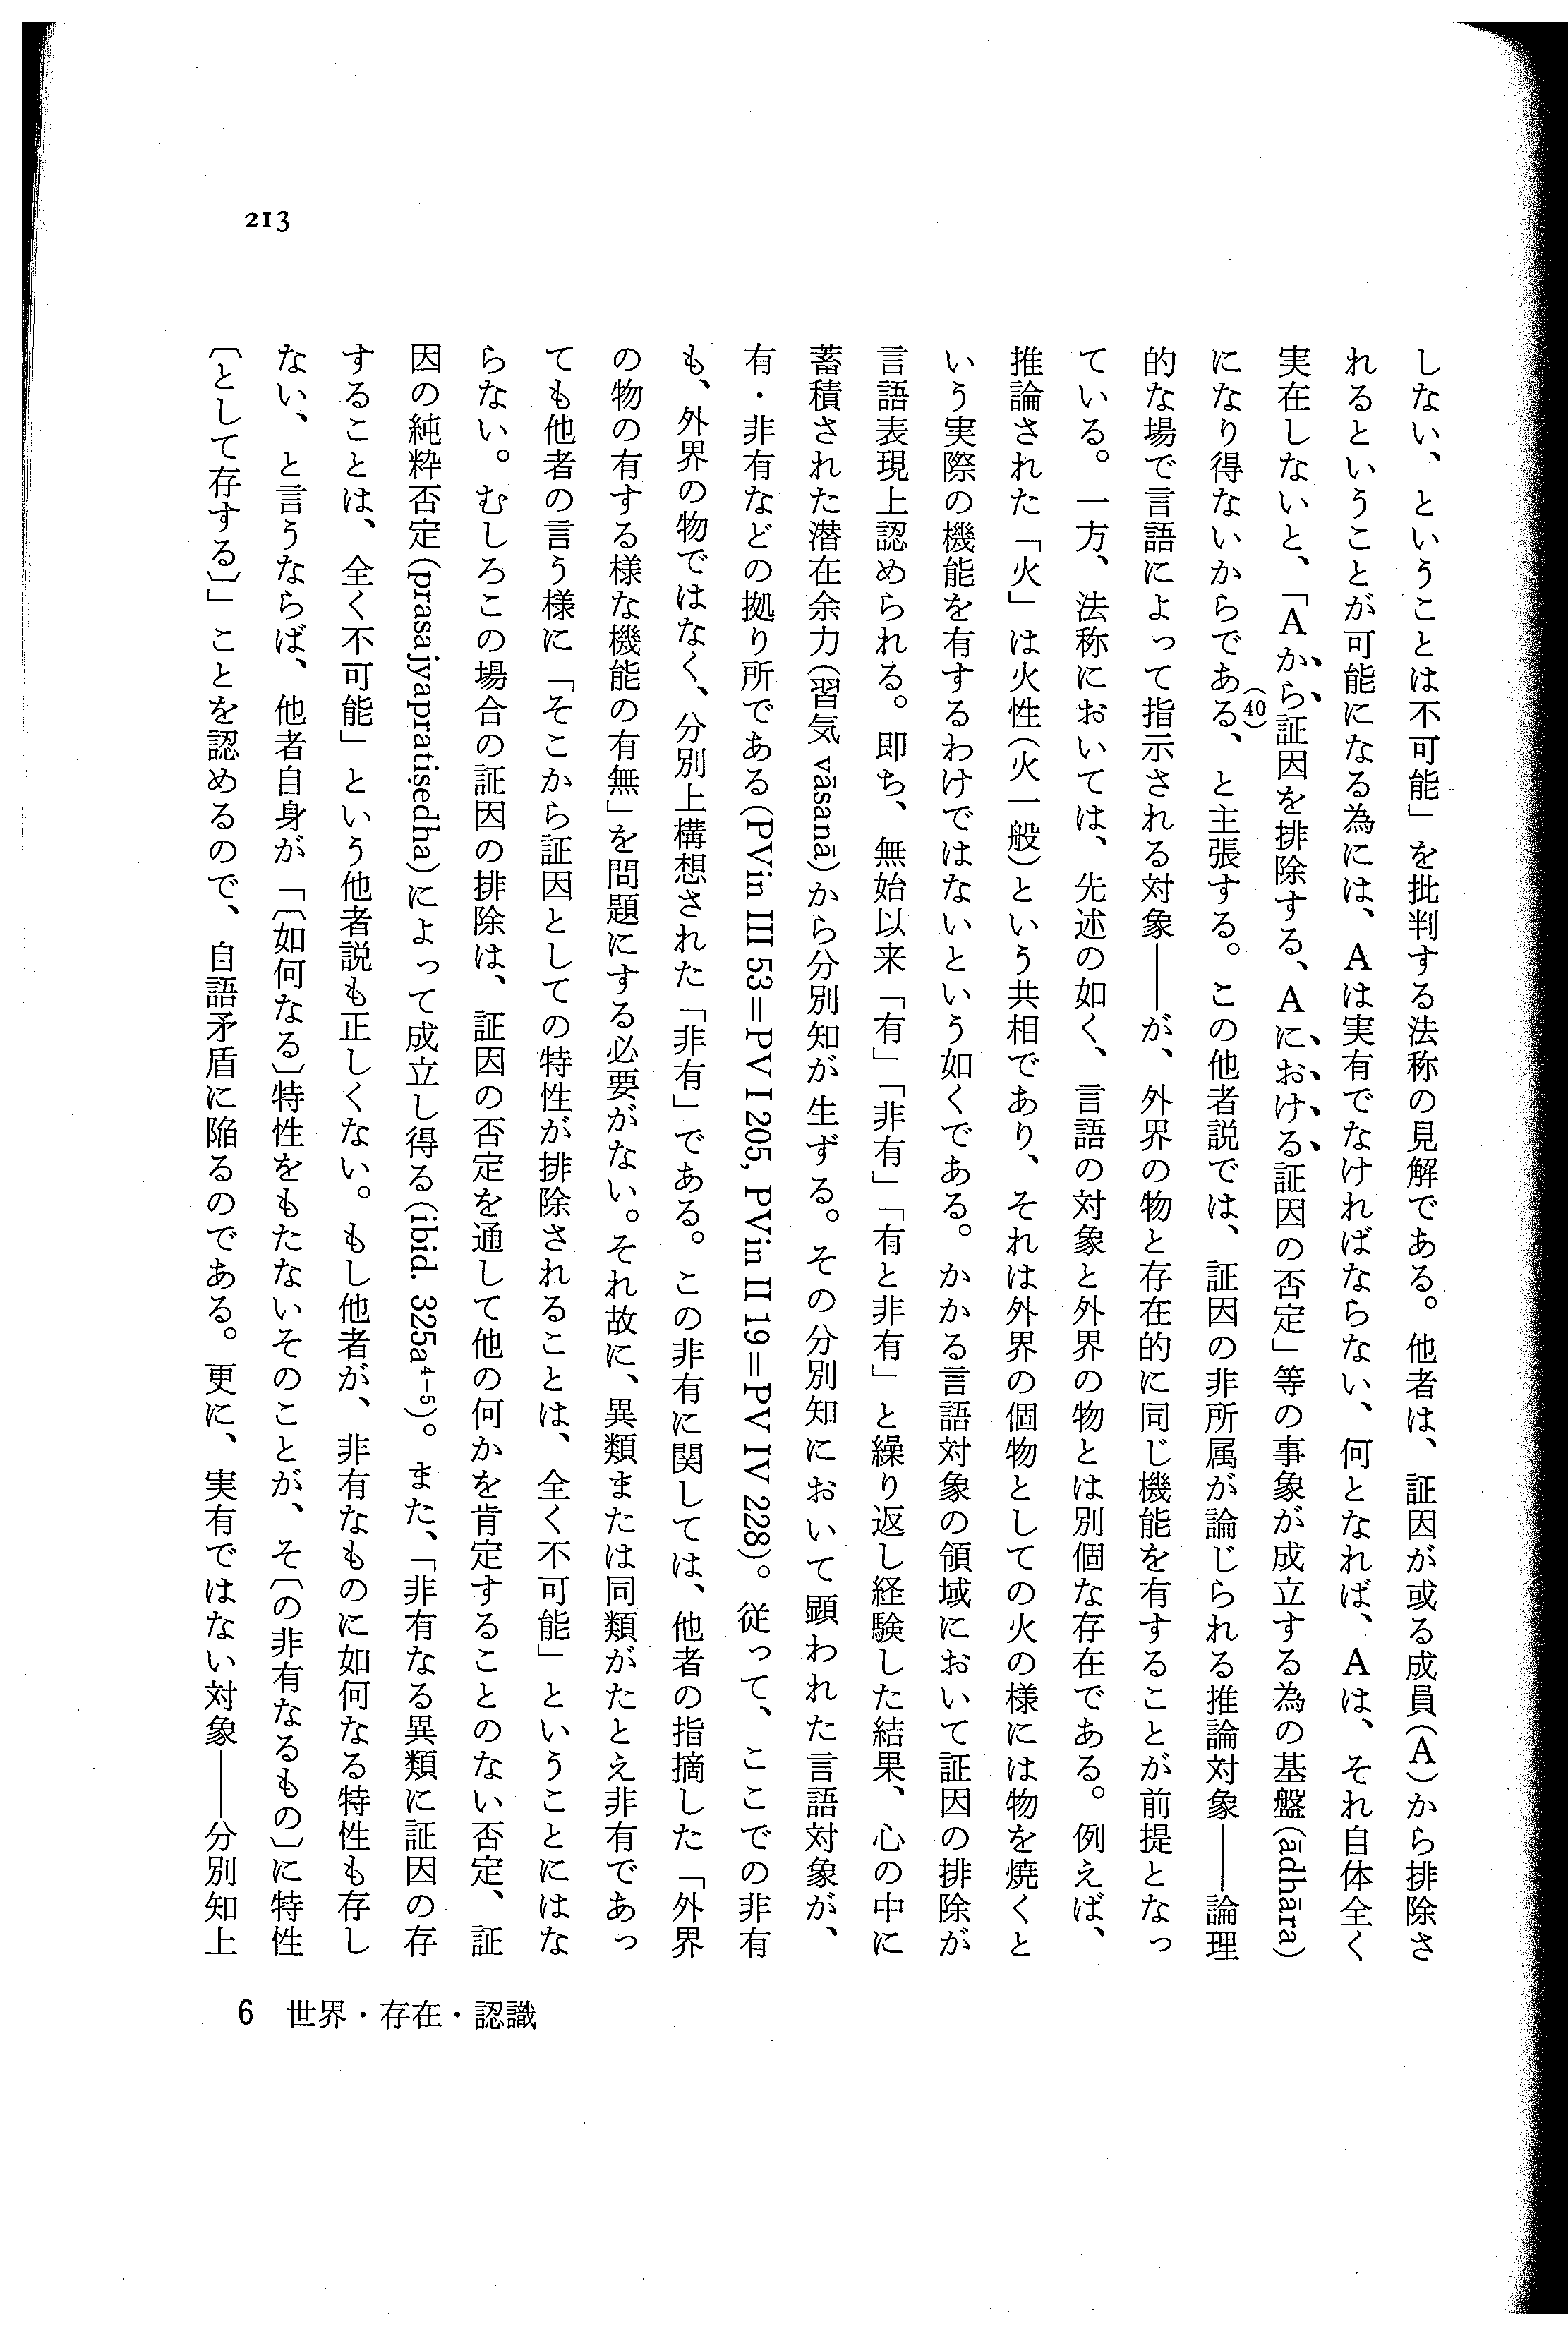 しない、ということは不可能」を批判する法称の見解である。他者は、証因が或る成員(A)から排除さ
れるということが可能になる為には、Aは実有でなければならない、何となれば、Aは、それ自体全く
実在しないと、「Aから証因を排除する、Aにおける証因の否定」等の事象が成立する為の基盤(ādhāra)
になり得ないからである(40)、と主張する。この他者説では、証因の非所属が論じられる推論対象――論理
的な場で言語によって指示される対象――が、外界の物と存在的に同じ機能を有することが前提となっ
ている。一方、法称においては、先述の如く、言語の対象と外界の物とは別個な存在である。例えば、
推論された「火」は火性(火一般)という共相であり、それは外界の個物としての火の様には物を焼くと
いう実際の機能を有するわけではないという如くである。かかる言語対象の領域において証因の排除が
言語表現上認められる。即ち、無始以来「有」「非有」「有と非有」と繰り返し経験した結果、心の中に
蓄積された潜在余力(習気 vāsanā)から分別知が生ずる。その分別知において顕われた言語対象が、
有・非有などの拠り所である(PVin III 53=PV I 205, PVin II 19=PV IV 228)。従って、ここでの非有
も、外界の物ではなく、分別上構想された「非有」である。この非有に関しては、他者の指摘した「外界
の物の有する様な機能の有無」を問題にする必要がない。それ故に、異類または同類がたとえ非有であっ
ても他者の言う様に「そこから証因としての特性が排除されることは、全く不可能」ということにはな
らない。むしろこの場合の証因の排除は、証因の否定を通して他の何かを肯定することのない否定、証
因の純粋否定(prasajyapratiṣedha)によって成立し得る(ibid. 325a⁴⁻⁵)。また、「非有なる異類に証因の存
することは、全く不可能」という他者説も正しくない。もし他者が、非有なものに如何なる特性も存し
ない、と言うならば、他者自身が「〔如何なる〕特性をもたないそのことが、そ〔の非有なるもの〕に特性
〔として存する〕」ことを認めるので、自語矛盾に陥るのである。更に、実有ではない対象――分別知上
6 世界・存在・認識
213